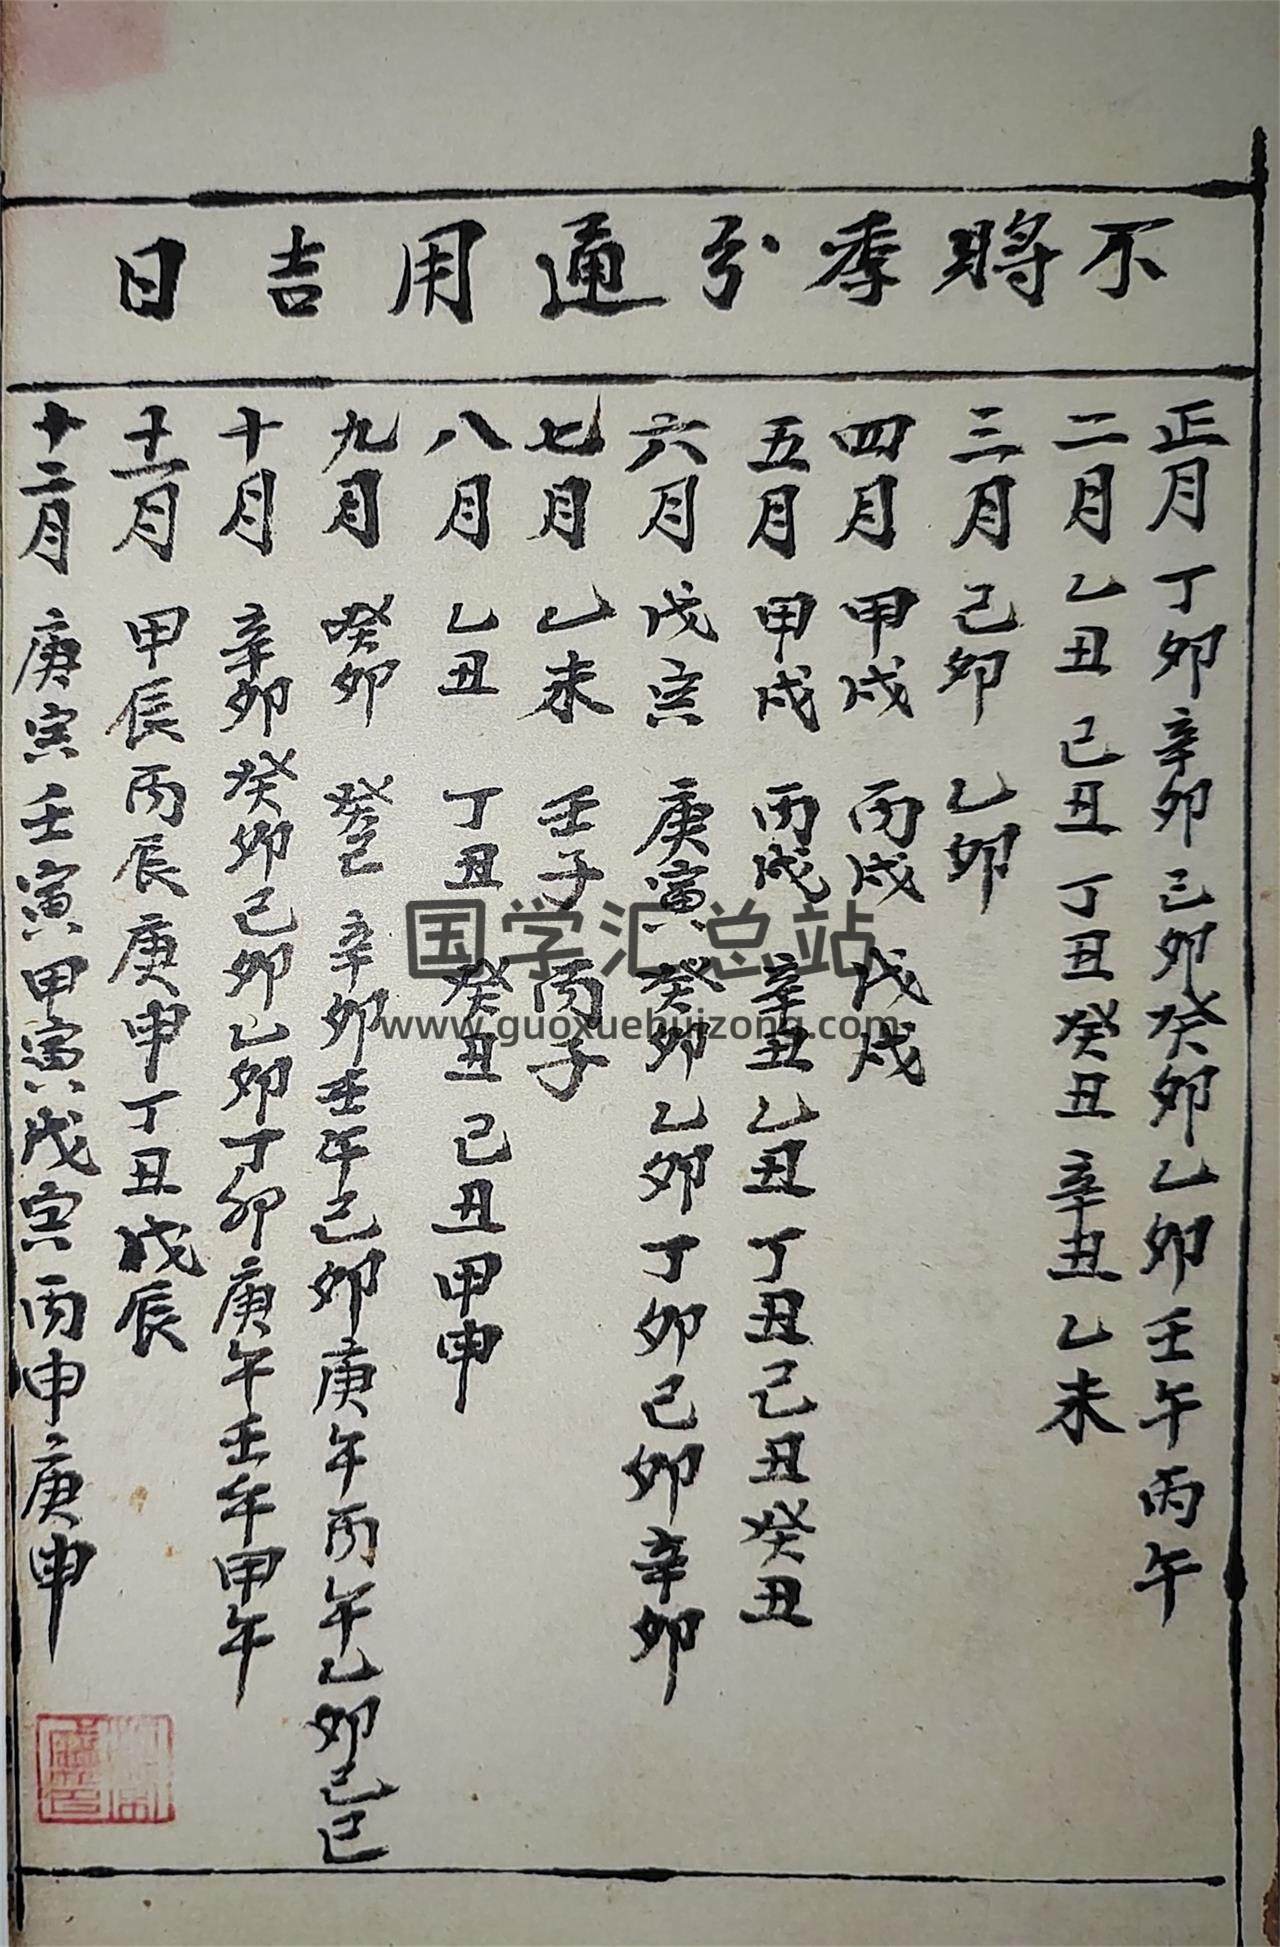 不將季分通用吉日
正月 丁卯 辛卯 己卯 癸卯 乙卯 壬午 丙午
二月 乙丑 己丑 丁丑 癸丑 辛丑 乙未
三月 己卯 乙卯
四月 甲戌 丙戌 戊戌
五月 甲戌 丙戌 辛丑 乙丑 丁丑 己丑 癸丑
六月 戊寅 庚寅 癸卯 乙卯 丁卯 己卯 辛卯
七月 乙未 壬子 丙子
八月 乙丑 丁丑 癸丑 己丑 甲申
九月 癸卯 癸巳 辛卯 壬午 己卯 庚午 丙午 乙卯 己巳
十月 辛卯 癸卯 己卯 乙卯 丁卯 庚午 壬午 甲午
十一月 甲辰 丙辰 庚申 丁丑 戊辰
十二月 庚寅 壬寅 甲寅 戊寅 丙申 庚申
国学汇总站
www.guoxuehuizong.com